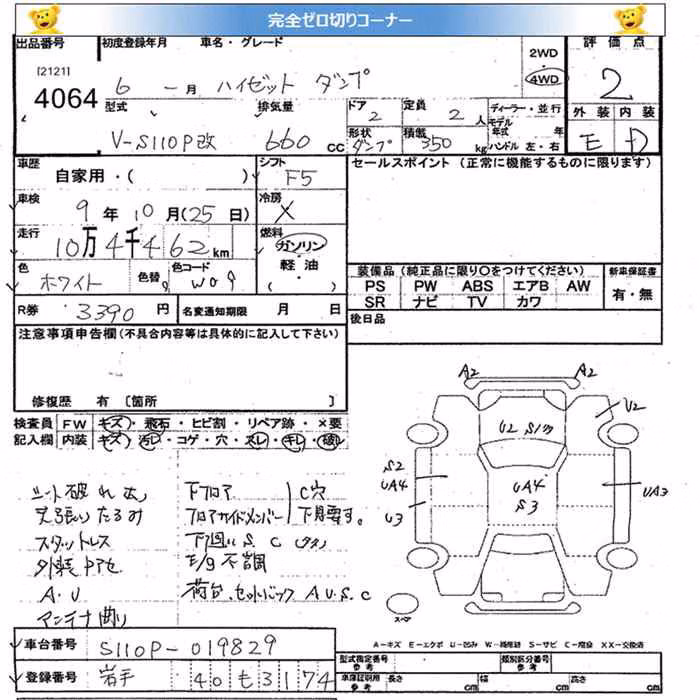 完全ゼロ切りコーナー
出品番号 初度登録年月 車名・グレード 2WD 4WD 評価点
[2121]
4064
6 ー 月 ハイゼット ダンプ 2
型式 排気量 ドア 2 定員 2 人 ディーラー・並行 外装 内装
モデル年式 年
V-S110P改 660 cc 形状 ダンプ 積載 350 kg ハンドル 左・右 E D
車歴 シフト セールスポイント (正常に機能するものに限ります)
自家用・( ) F5
車検 冷房
9 年 10 月(25 日) X
走行 燃料
10万4千462 km ガソリン
軽油
( )
色 ホワイト 色替 色コード W09
装備品(純正品に限り○をつけてください) 新車保証書
PS PW ABS エアB AW 有・無
SR ナビ TV カワ
R券 3390 円 名変通知期限 月 日
後日品
注意事項申告欄(不具合内容等は具体的に記入して下さい)
修復歴 有 〔箇所 〕
検査員 FW キズ・飛石・ヒビ割・リペア跡・×要
記入欄 内装 キズ・汚レ・コゲ・穴・スレ・キレ・破レ
A2 A2
U2
U2 S1
S2
UA4
U3
UA4
S3
UA3
スペア
シート破れ大
天張りたるみ
スタットレス
外装中アセ
A.U
アンテナ曲り
下フロア C穴
フロアサイドメンバー 下見要す。
下回り S. C
E/g不調
荷台、セットバック A U.S.C
A-キズ E-エクボ U-凹み W-補修跡 S-サビ C-腐食 XX-交換済
車台番号 S110P-019829
登録番号 岩手 40 も 3174
型式指定番号 参考 類別区分番号 参考
車庫証明用 参考 長さ cm 幅 cm 高さ cm